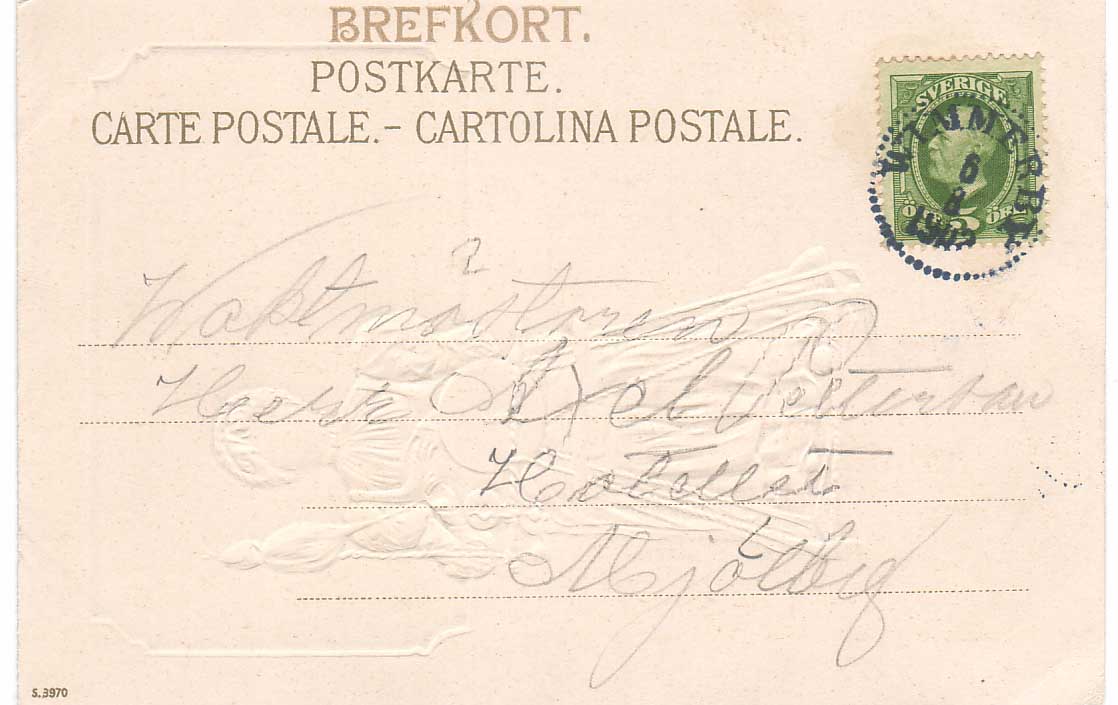 BREFKORT.
POSTKARTE.
CARTE POSTALE.– CARTOLINA POSTALE.
SVERIGE
WIMMERBY
6
8
1903
5
ÖRE
Waktmästaren
Herr Axel
Hotellet
Mjölby
S.3970